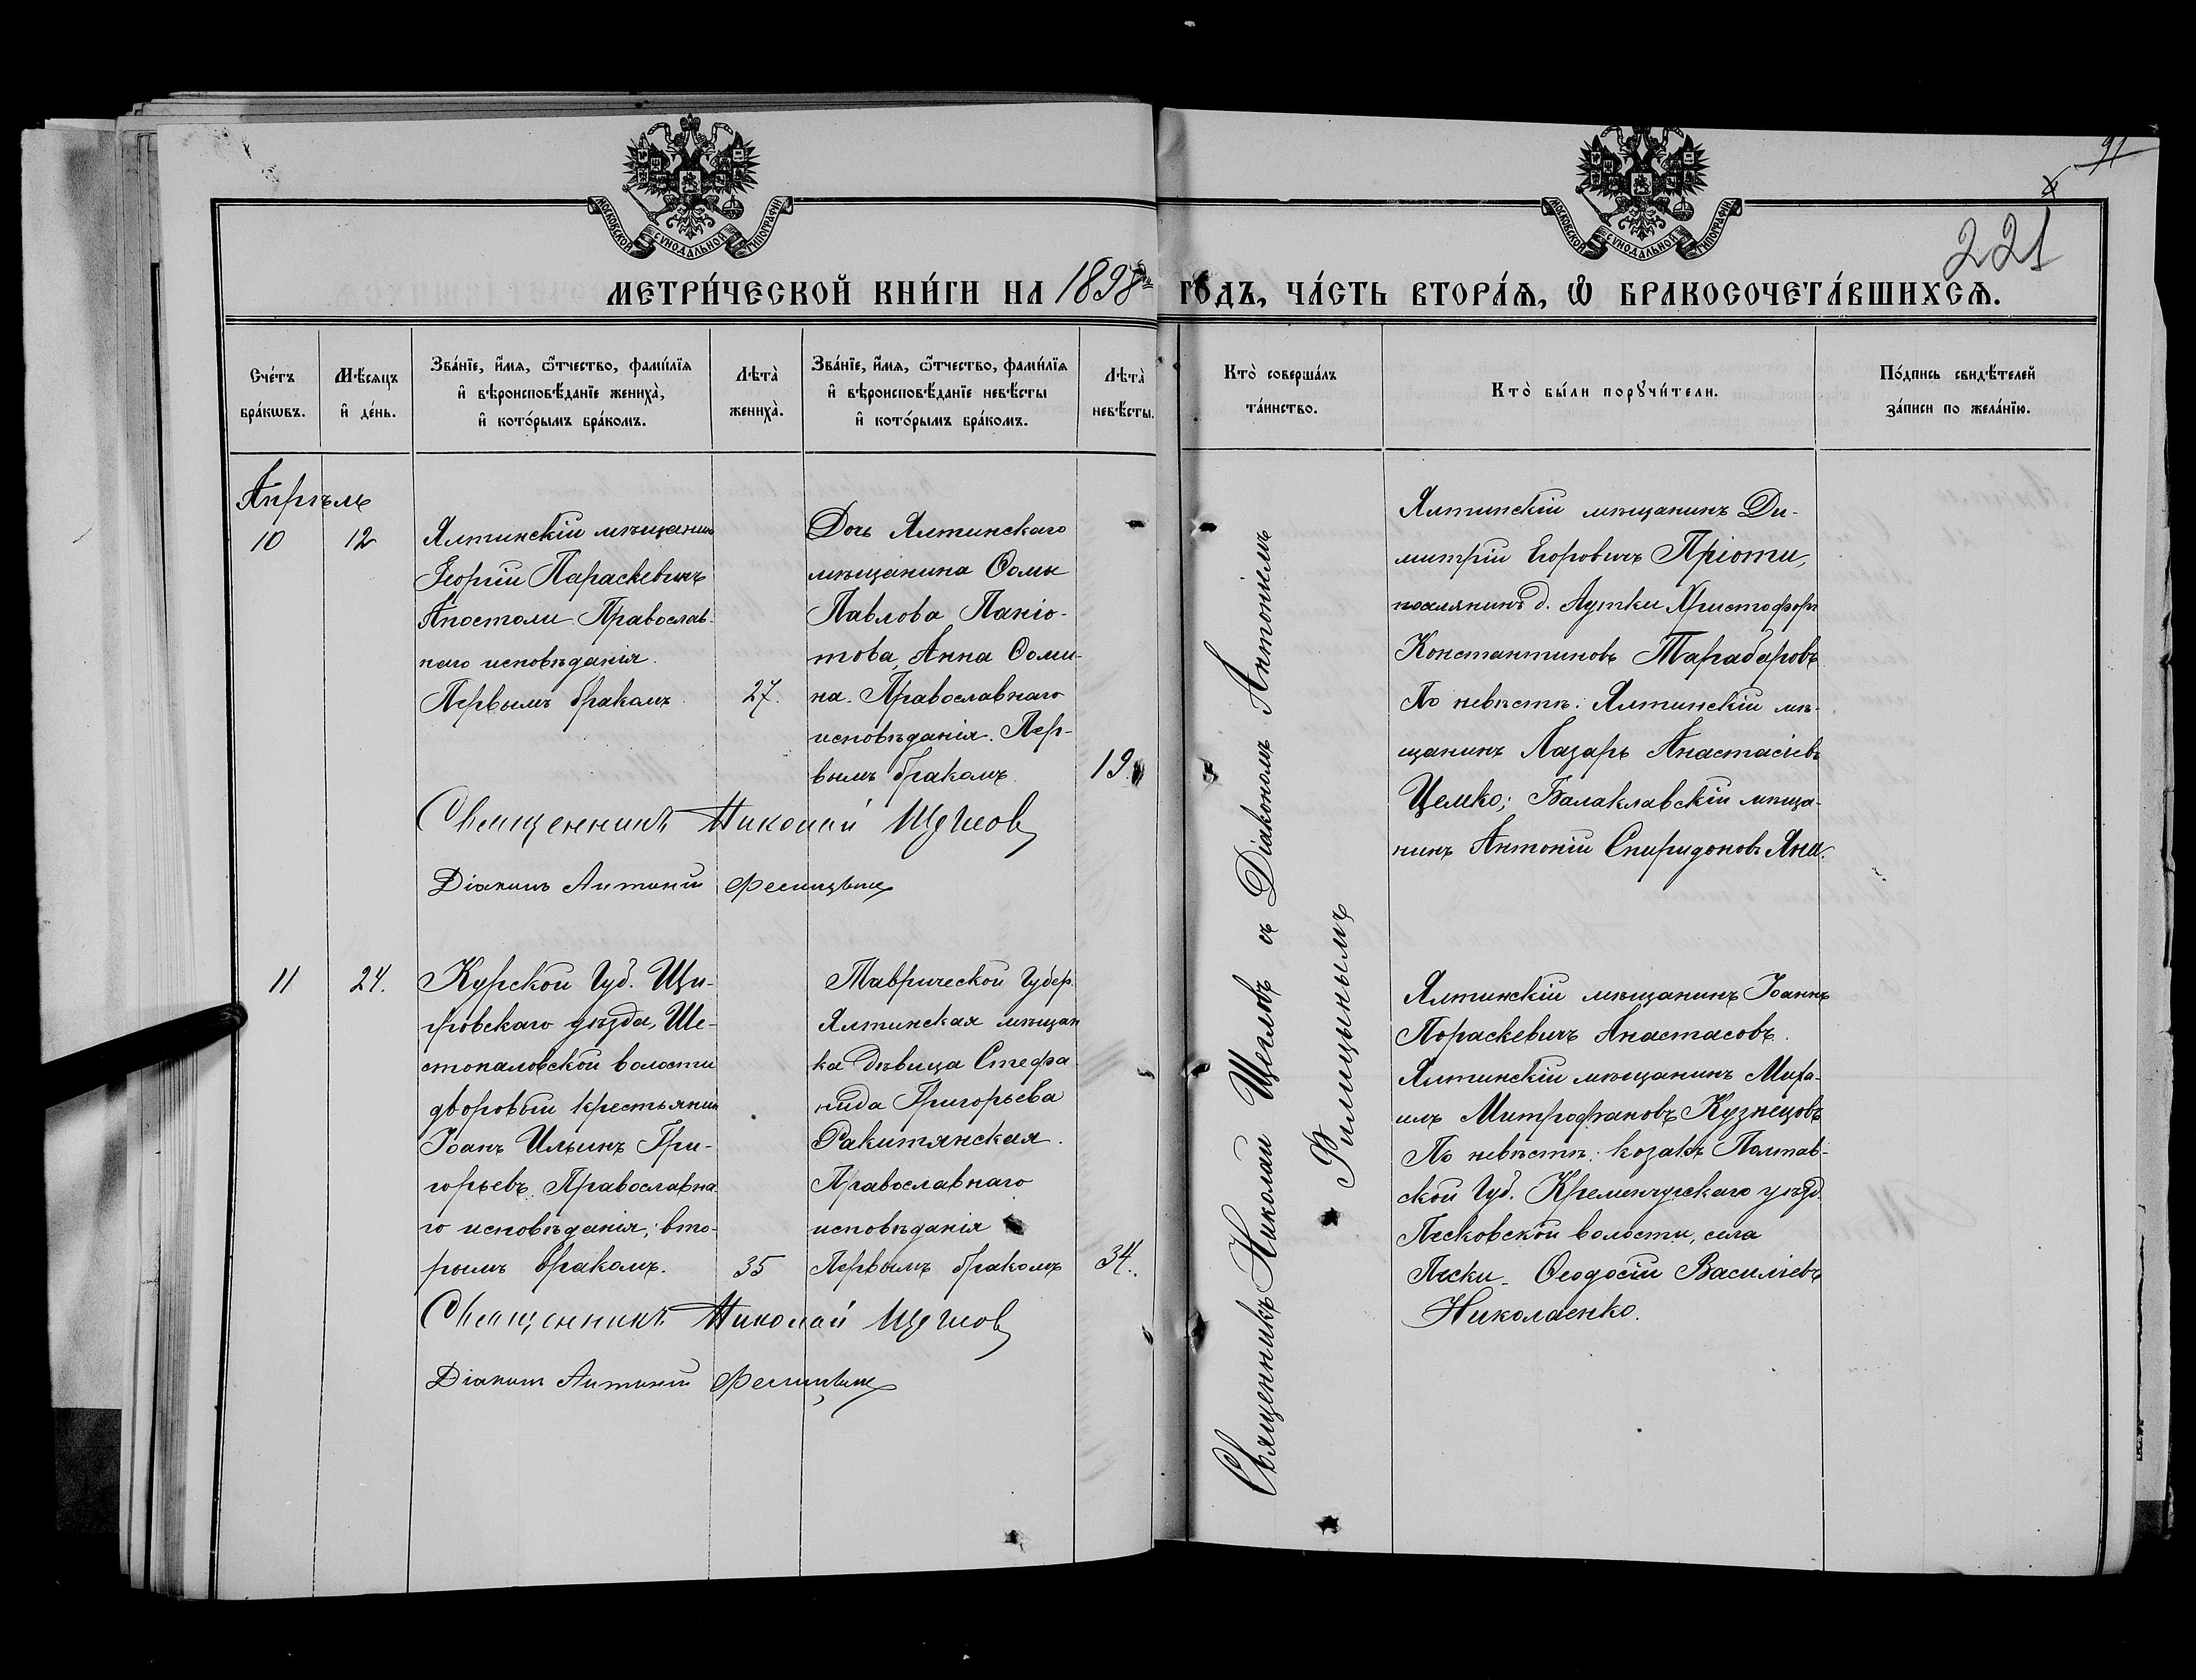 МОСКОВСКОЙ СѴНОДАЛЬНОЙ ТИПОГРАФІИ
МОСКОВСКОЙ СѴНОДАЛЬНОЙ ТИПОГРАФІИ
91
221
МЕТРИ́ЧЕСКОЙ КНИ́ГИ НА 1898 ГО́ДЪ, ЧА́СТЬ ВТОРА́Ѧ, Ѽ БРАКОСОЧЕТА́ВШИХСѦ.
Сче́тъ
бра́кѡвъ.
Мѣ́сѧцъ
и҆ де́нь.
Зва́нїе, и҆́мѧ, ѻ҆́тчество, фами́лїѧ
и҆ вѣроисповѣ́данїе жениха̀,
и҆ кото́рымъ бра́комъ.
Лѣта̀
жениха̀.
Зва́нїе, и҆́мѧ, ѻ҆́тчество, фами́лїѧ
и҆ вѣроисповѣ́данїе невѣ́сты
и҆ кото́рымъ бра́комъ.
Лѣта̀
невѣ́сты.
Кто̀ соверша́лъ
та́инство.
Кто̀ бы́ли порꙋчи́тели.
По́дпись свидѣ́телей
за́писи по жела́нїю.
Апрѣль
10
12
Ялтинскій мѣщанинъ
Георгій Параскевинъ
Апостоли Православ-
наго исповѣданія.
Первымъ бракомъ
27.
Дочь Ялтинскаго
мѣщанина Ѳомы
Павлова Паніо-
това, Анна Ѳоми-
на. Православнаго
исповѣданія. Пер-
вымъ бракомъ.
19
Священникъ Николай Щегловъ съ Діакономъ Антоніемъ
Филицынымъ
Ялтинскій мѣщанинъ Ди-
митрій Егоровичъ Пріоти,
поселянинъ д. Аутки Христофоръ
Константиновъ Тарабаровъ
По невѣстѣ: Ялтинскій мѣ-
щанинъ Лазарь Анастасіевъ
Цемко; Балаклавскій мѣща-
нинъ Антоній Спиридоновъ Яни.
Священникъ Николай Щегловъ
Діаконъ Антоній
11
24.
Курской Губ. Щи-
гровскаго уѣзда, Ше-
стопаловской волости
дворовый крестьянинъ
Іоанъ Ильинъ Гри-
горьевъ. Православна-
го исповѣданія; вто-
рымъ бракомъ.
35
Таврической Губер.
Ялтинская мѣщан
ка дѣвица Стефа
нида Григорьева
Ракитянская.
Православнаго
исповѣданія
Первымъ бракомъ
34.
Ялтинскій мѣщанинъ Іоаннъ
Пораскевичъ Анастасовъ.
Ялтинскій мѣщанинъ Миха-
илъ Митрофановъ Кузнецовъ
По невѣстѣ: козакъ Полтав-
ской Губ. Кременчугскаго уѣзд.
Песковской волости, села
Пески Ѳеодосій Василіевъ
Николаенко.
Священникъ Николай Щегловъ
Діаконъ Антоній